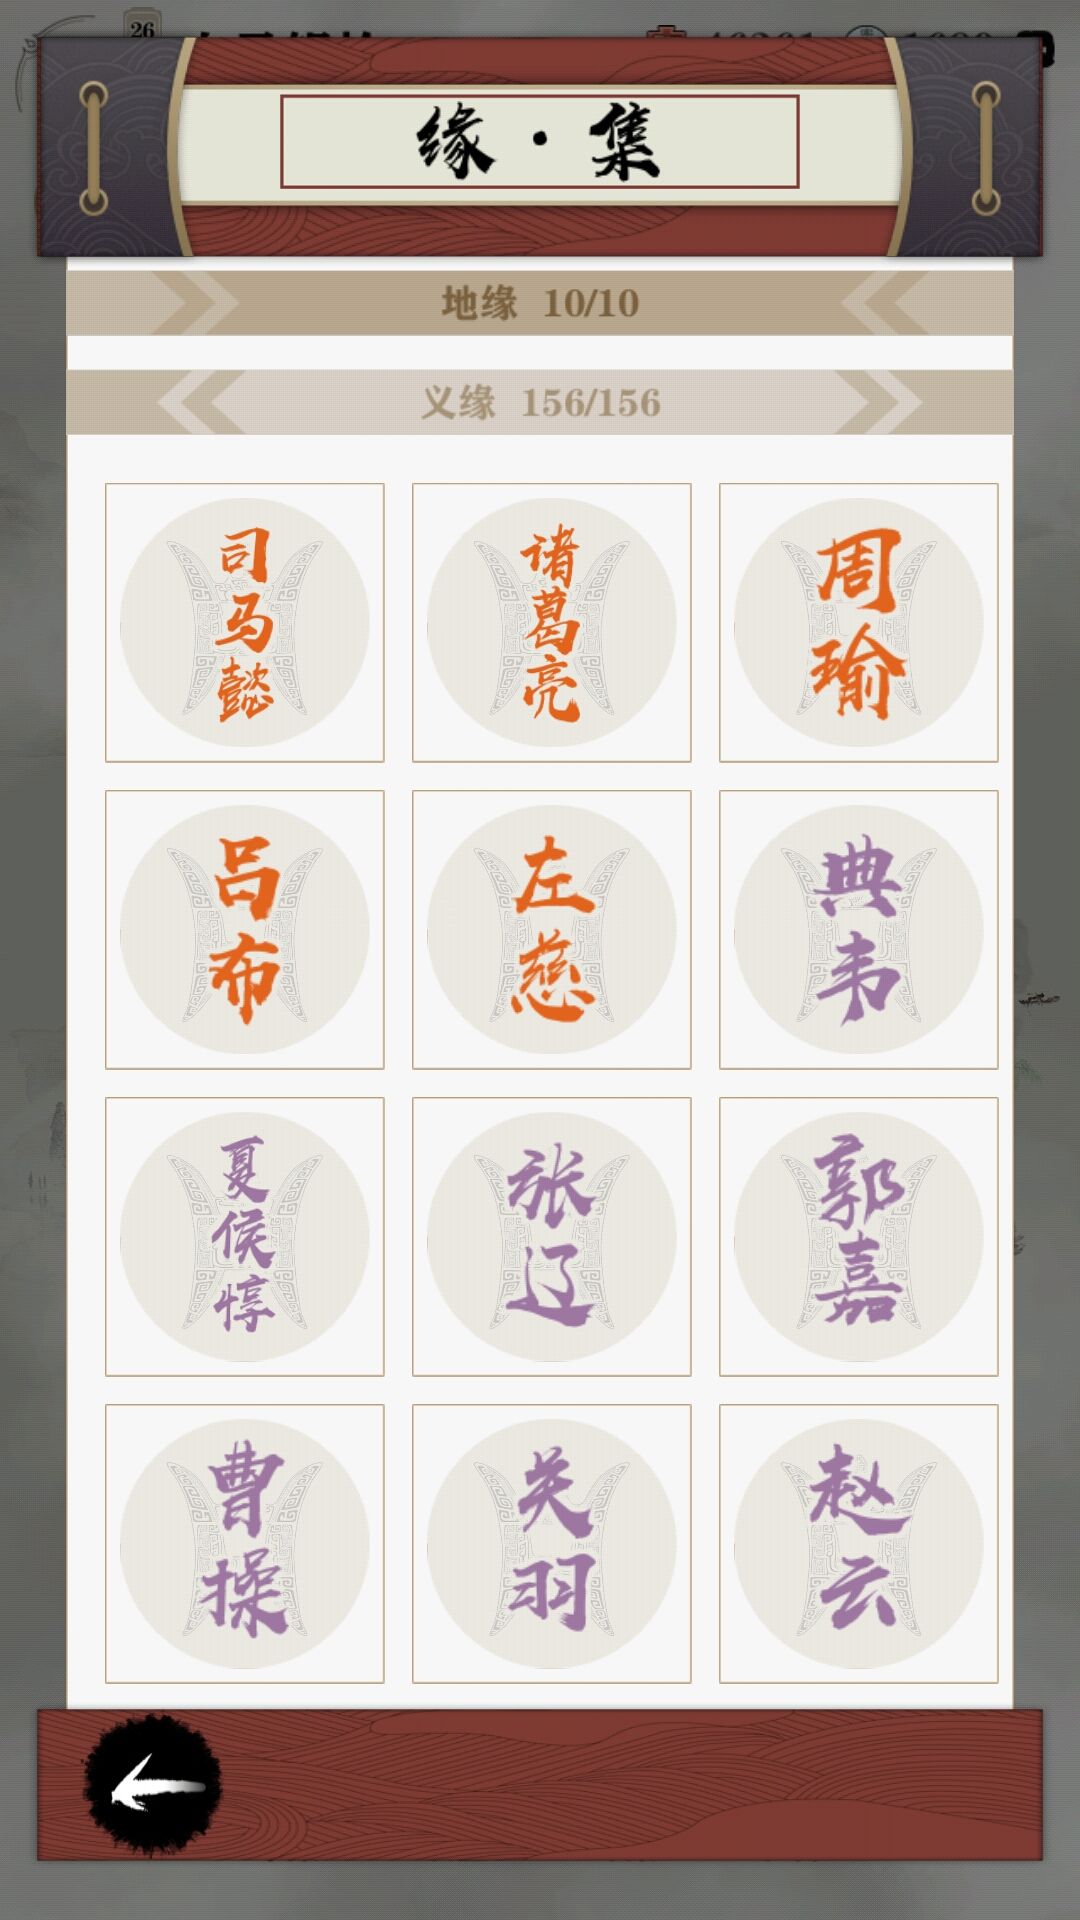 26
缘·集
地缘 10/10
义缘 156/156
司马懿
诸葛亮
周瑜
吕布
左慈
典韦
夏侯惇
张辽
郭嘉
曹操
关羽
赵云